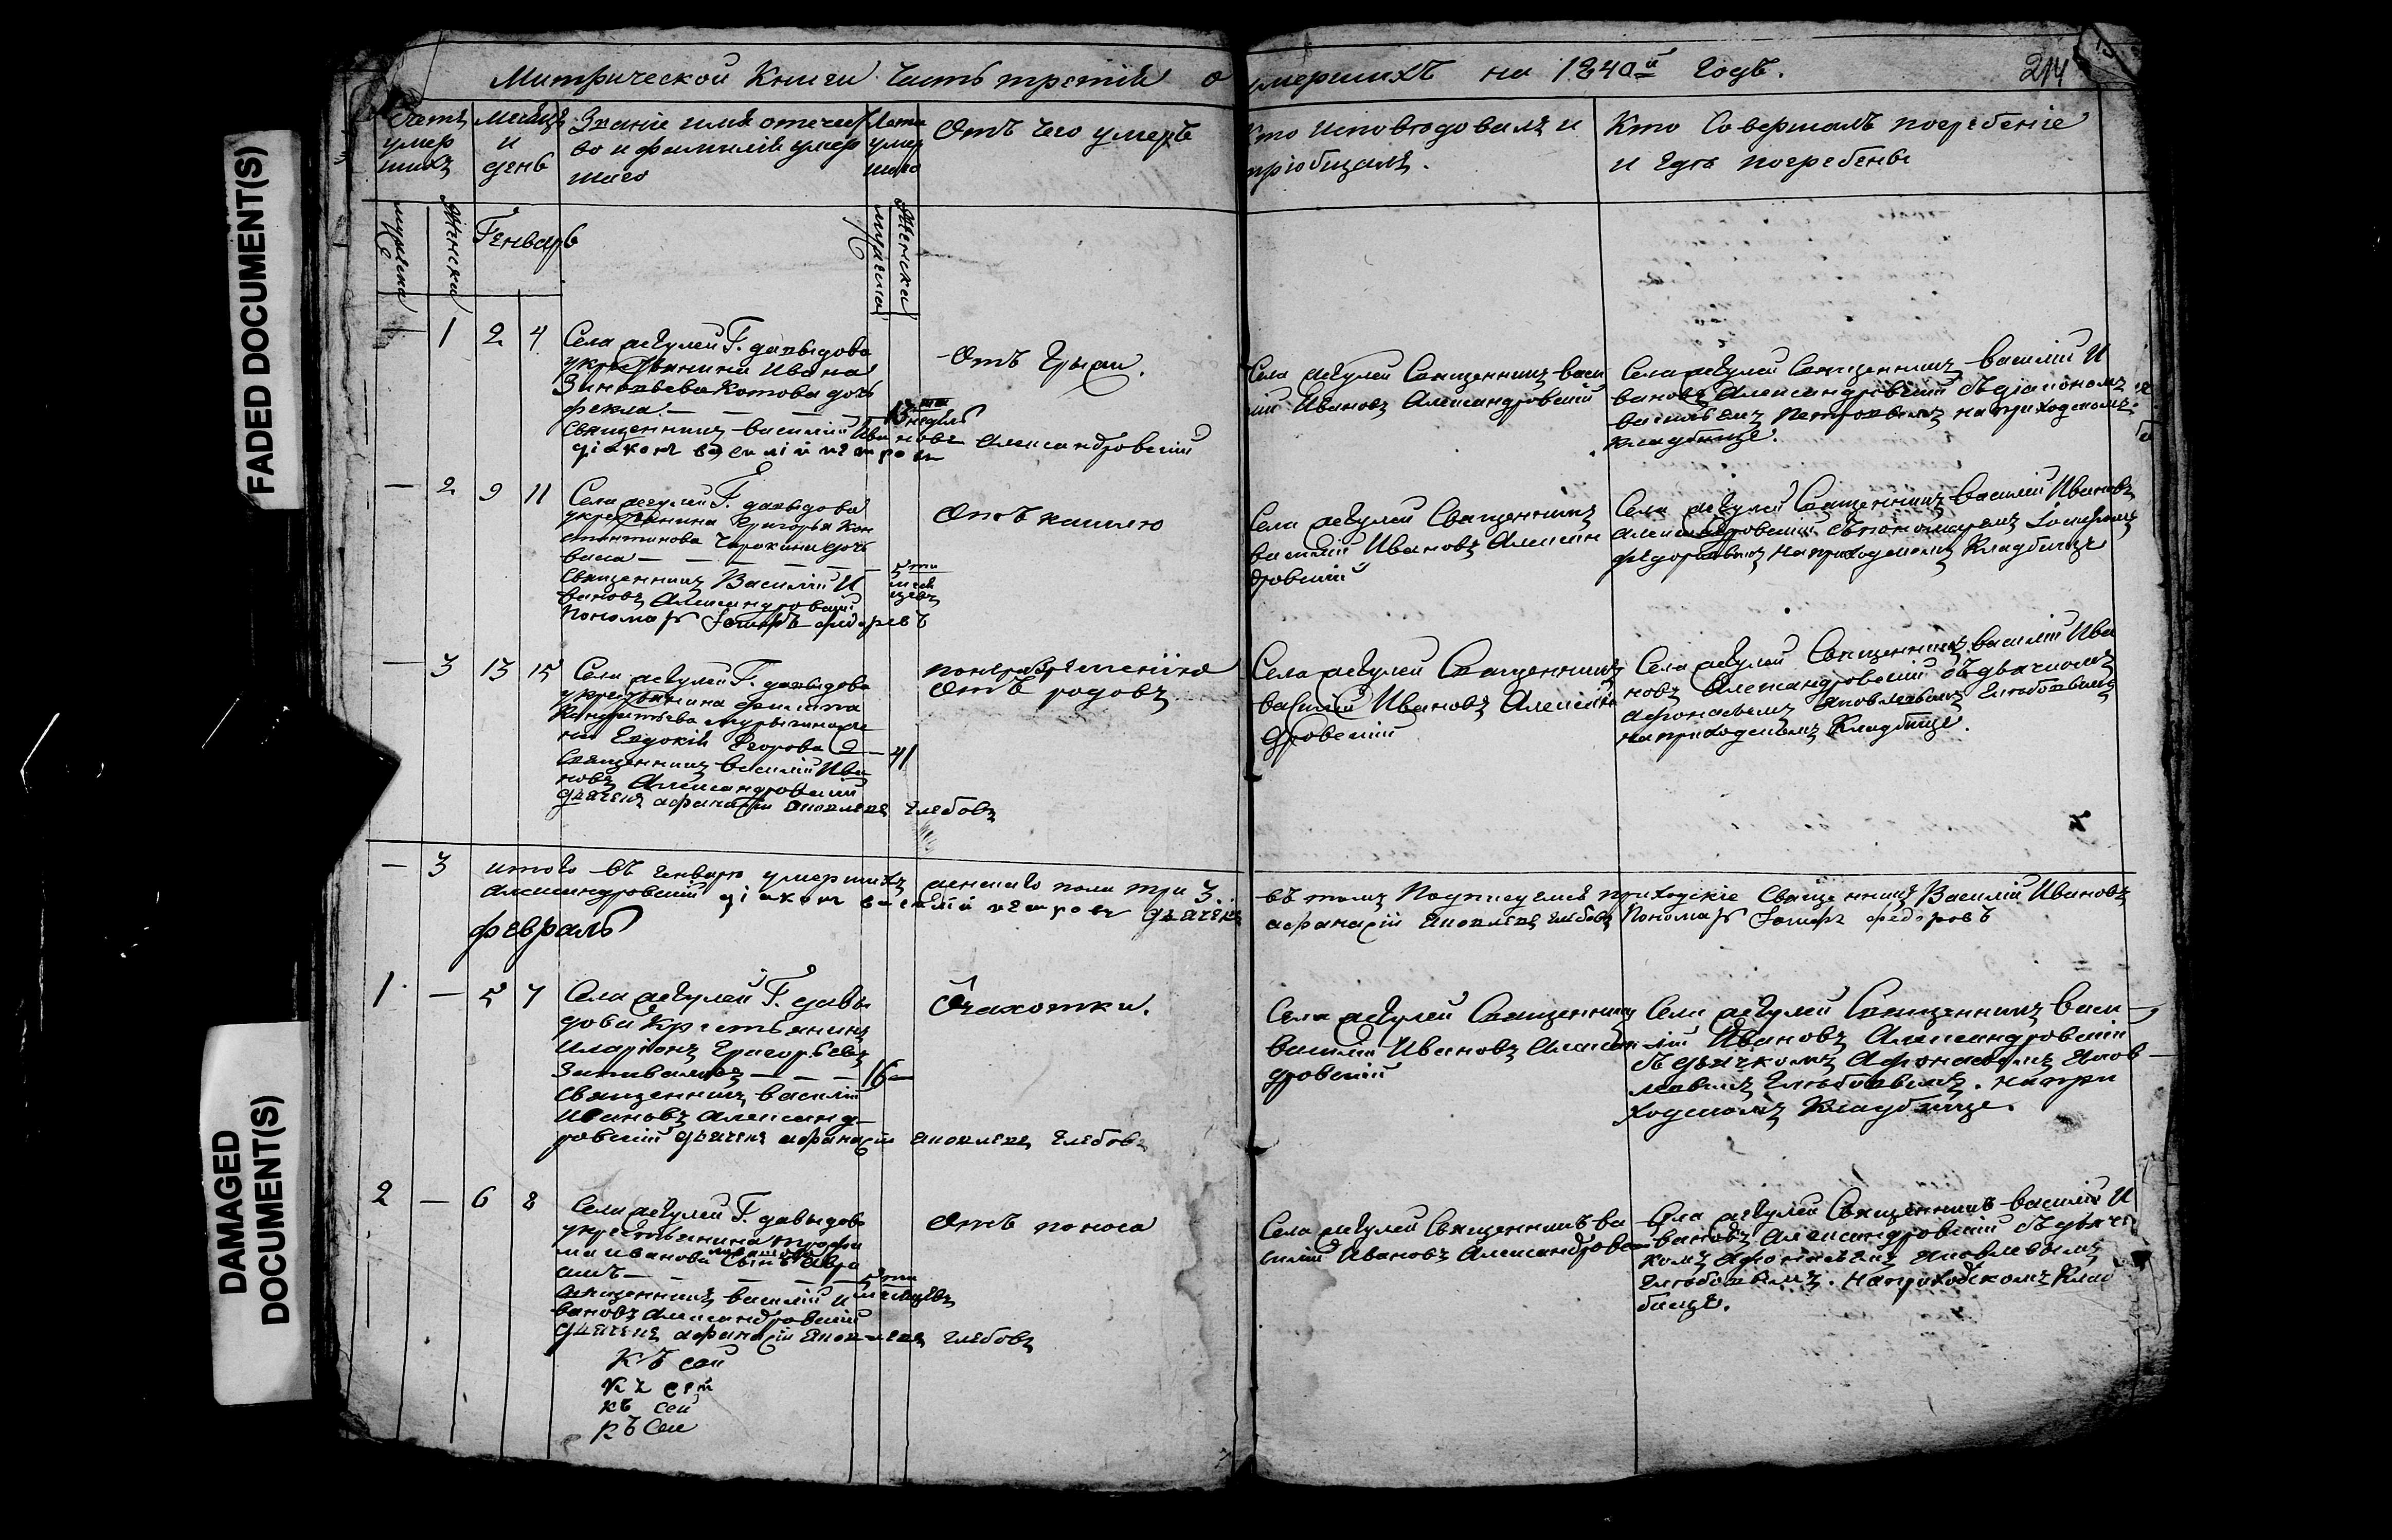 FADED DOCUMENT(S)
DAMAGED
DOCUMENT(S)
Митрической Книги Часть третій о умершихъ на 1840й Годъ. 214
Счетъ умер шихъ
мѣсяцъ и день
Званіе имя отечест
во и фамилія умер
шаго
Лета умер шаго
Отъ чего умеръ
Кто исповѣдовалъ и
пріобщалъ.
Кто Совершалъ погребеніе
и гдѣ погребены
мужеска
Женска
Генварь
мужеска
Женска
— 1 2 4
Села Г. давыдова
крестьянина Ивана
Зиновьева Котова дочь
фекла. — — —
недѣль
Священникъ василій Ивановъ Александровскій
діаконъ василій петровъ
Отъ Грыжи.
Села Священникъ васи
лій Ивановъ Александровскій
Села Священникъ василій И
вановъ Александровскій съ діакономъ
васильемъ Петровымъ на приходскомъ
кладбище.
— 2 9 11
Села Г. давыдова
крестьянина Григорья Кон
стантинова дочь
васа — — — —
5ти месяцевъ
Священникъ Василій И
вановъ Александровскій
Пономарь Іосифъ федоровъ
Отъ кашлю
Села Священникъ
василій Ивановъ Алексан
дровскій
Села Священникъ василій Ивановъ
Александровскій съ пономаремъ Іосифомъ
федоровымъ на приходскомъ Кладбище
— 3 13 15
Села Г. давыдова
крестьянина
Кондратьева же
на Евдокія Егорова — 41
Священникъ василій Ива
новъ Александровскій
дьячекъ афанасій яковлевъ глебовъ
отъ родовъ
Села Священникъ
василій Ивановъ Алексан
дровскій
Села Священникъ василій Ива
новъ Александровскій съ дьячкомъ
афонасьемъ яковлевымъ Глебовымъ
на приходскомъ Кладбище.
— 3 итого въ генваре умершихъ женскаго пола три 3. въ томъ Подписуемся приходскіе Священникъ Василій Ивановъ
Александровскій діаконъ василій петровъ дьячекъ афанасій яковлевъ глебовъ Пономарь Іосифъ федоровъ
февраль
1 — 5 7
Села Г. давы
дова Крестьянинъ
Иларіонъ Григорьевъ
— — — 16 —
Священникъ василій
Ивановъ Александ
ровскій дьячекъ афанасій яковлевъ глебовъ
Отчахотки.
Села Священникъ
василій Ивановъ Алексан
дровскій
Села Священникъ васи
лій Ивановъ Александровскій
съ дьячкомъ Афонасьемъ Яков
левымъ Глебовымъ. на при
ходскомъ Кладбище.
2 — 6 8
Села Г. давыдова
крестьянина трофи
ма иванова сынъ Авра
амъ — — — 5ти месяцевъ
Священникъ василій и
вановъ александровскій
дьячекъ афанасій яковлевъ глебовъ
Отъ поноса
Села Священникъ ва
силій Ивановъ Александровс
Села Священникъ василій И
вановъ Александровскій съ дьяч
комъ Афонасьемъ яковлевымъ
Глебовымъ. на приходскомъ Клад
бище.
Къ сей
Къ сей
къ сей
къ Сей